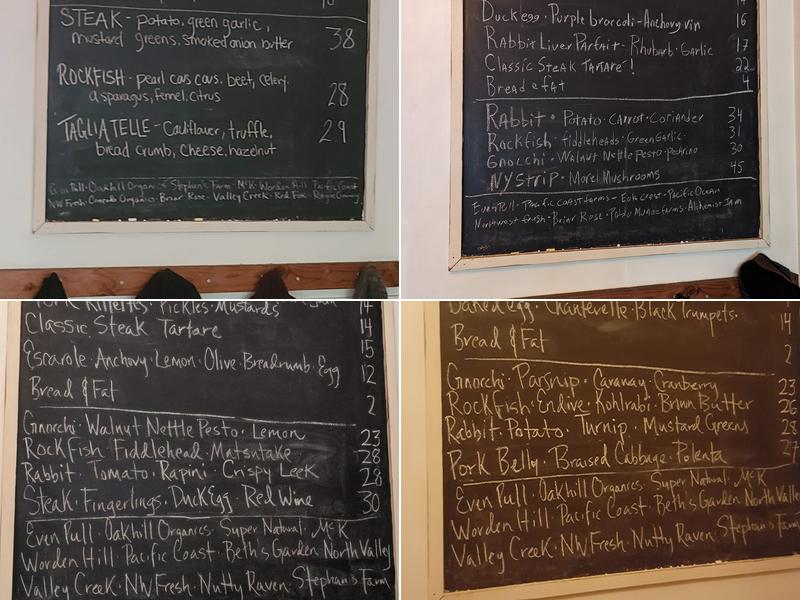 STEAK - potato, green garlic,
mustard greens, smoked onion butter 38
ROCKFISH - pearl cous cous, beet, celery,
asparagus, fennel, citrus 28
TAGLIATELLE - Cauliflower, truffle,
bread crumb, cheese, hazelnut 29
Even Pull · Oakhill Organics · Stephan's Farm · McK · Worden Hill · Pacific Coast
NW Fresh · Organics · Briar Rose · Valley Creek
Duck egg · Purple broccoli - Anchovy vin 16
Rabbit Liver Parfait - Rhubarb · Garlic 17
Classic Steak Tartare! 22
Bread & fat 4
Rabbit · Potato · Carrot · Coriander 34
Rockfish · fiddleheads · Green Garlic 31
Gnocchi · Walnut Nettle Pesto · pecorino 30
NY Strip · Morel Mushrooms 45
Even Pull · Pacific coast farms · Pacific Ocean
Northwest fresh · Briar Rose · farms · Alchemist Jam
Pickles · Mustards 14
Classic Steak Tartare 14
15
Escarole · Anchovy · Lemon · Olive · Breadcrumb · Egg 12
Bread & Fat 2
Gnocchi · Walnut Nettle Pesto · Lemon 23
Rockfish · Fiddlehead · Matsutake 28
Rabbit · Tomato · Rapini · Crispy Leek 28
Steak · Fingerlings · Duck Egg · Red Wine 30
Even Pull · Oakhill Organics · Super Natural · McK
Worden Hill · Pacific Coast · Beth's Garden · North Valley
Valley Creek · NW Fresh · Nutty Raven · Stephan's Farm
Baked egg · Chanterelle · Black Trumpets · 14
Bread & Fat 2
Gnocchi · Parsnip · Caraway · Cranberry 23
Rockfish · Endive · Kohlrabi · Brown Butter 26
Rabbit · Potato · Turnip · Mustard Greens 28
Pork Belly · Braised Cabbage · Polenta 27
Even Pull · Oakhill Organics · Super Natural · McK
Worden Hill · Pacific Coast · Beth's Garden North Valley
Valley Creek · NW Fresh · Nutty Raven · Stephan's Farm